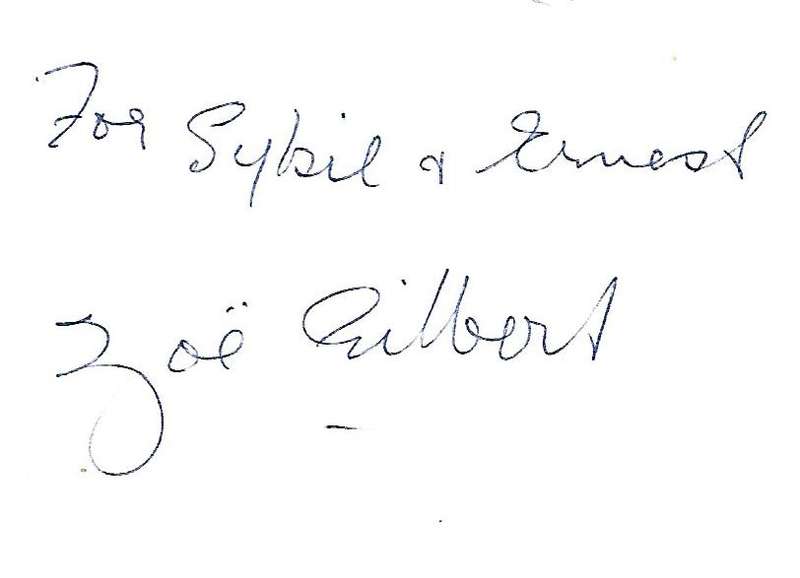 For Sybil & Ernest
Zoë Gilbert